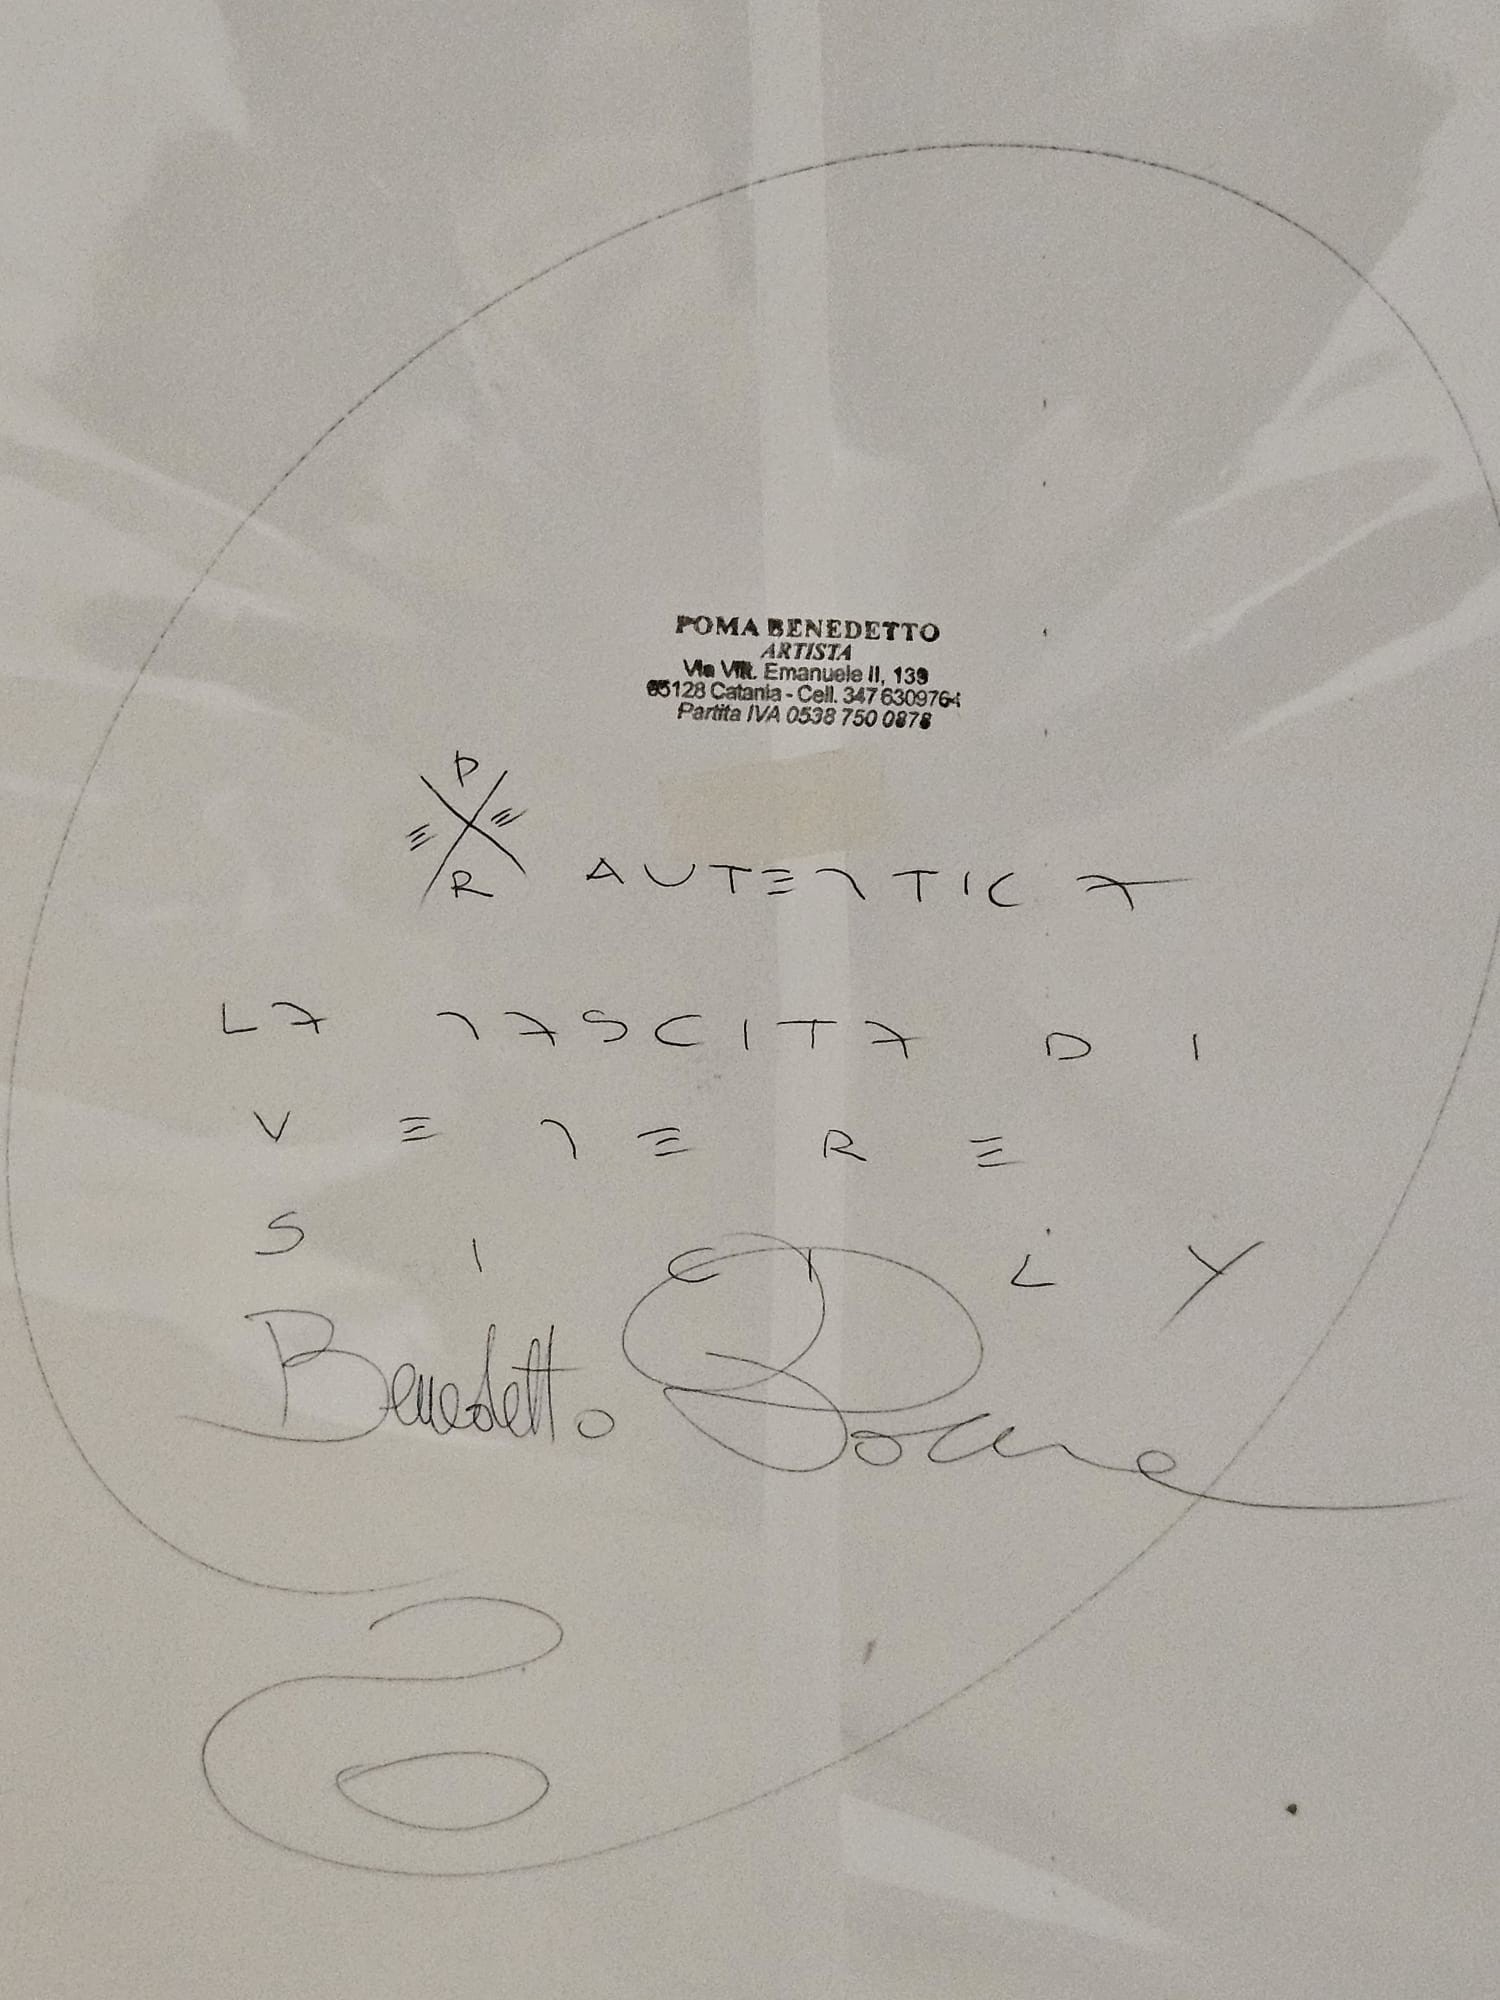 POMA BENEDETTO
ARTISTA
Via Vitt. Emanuele II, 139
95128 Catania - Cell. 347 6309764
Partita IVA 0538 750 0878
PER AUTENTICA
LA NASCITA DI
VENERE
SICILY
Benedetto Poma